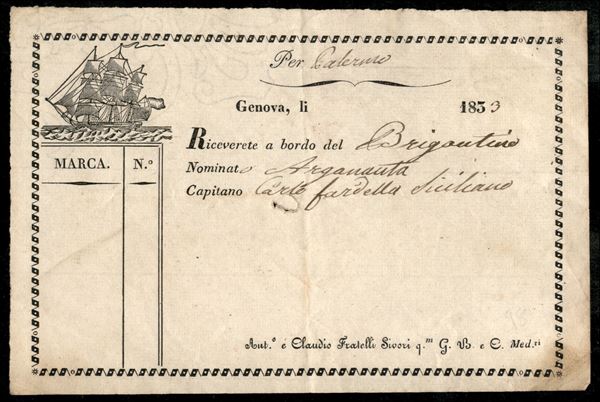 Per Palermo
Genova, li 1833
Riceverete a bordo del Brigantino
Nominato Arganauta
Capitano Carlo fardella Siciliano
MARCA. N.º
Ant.º e Claudio Fratelli Sivori q.m G. B. e C. Med.ri